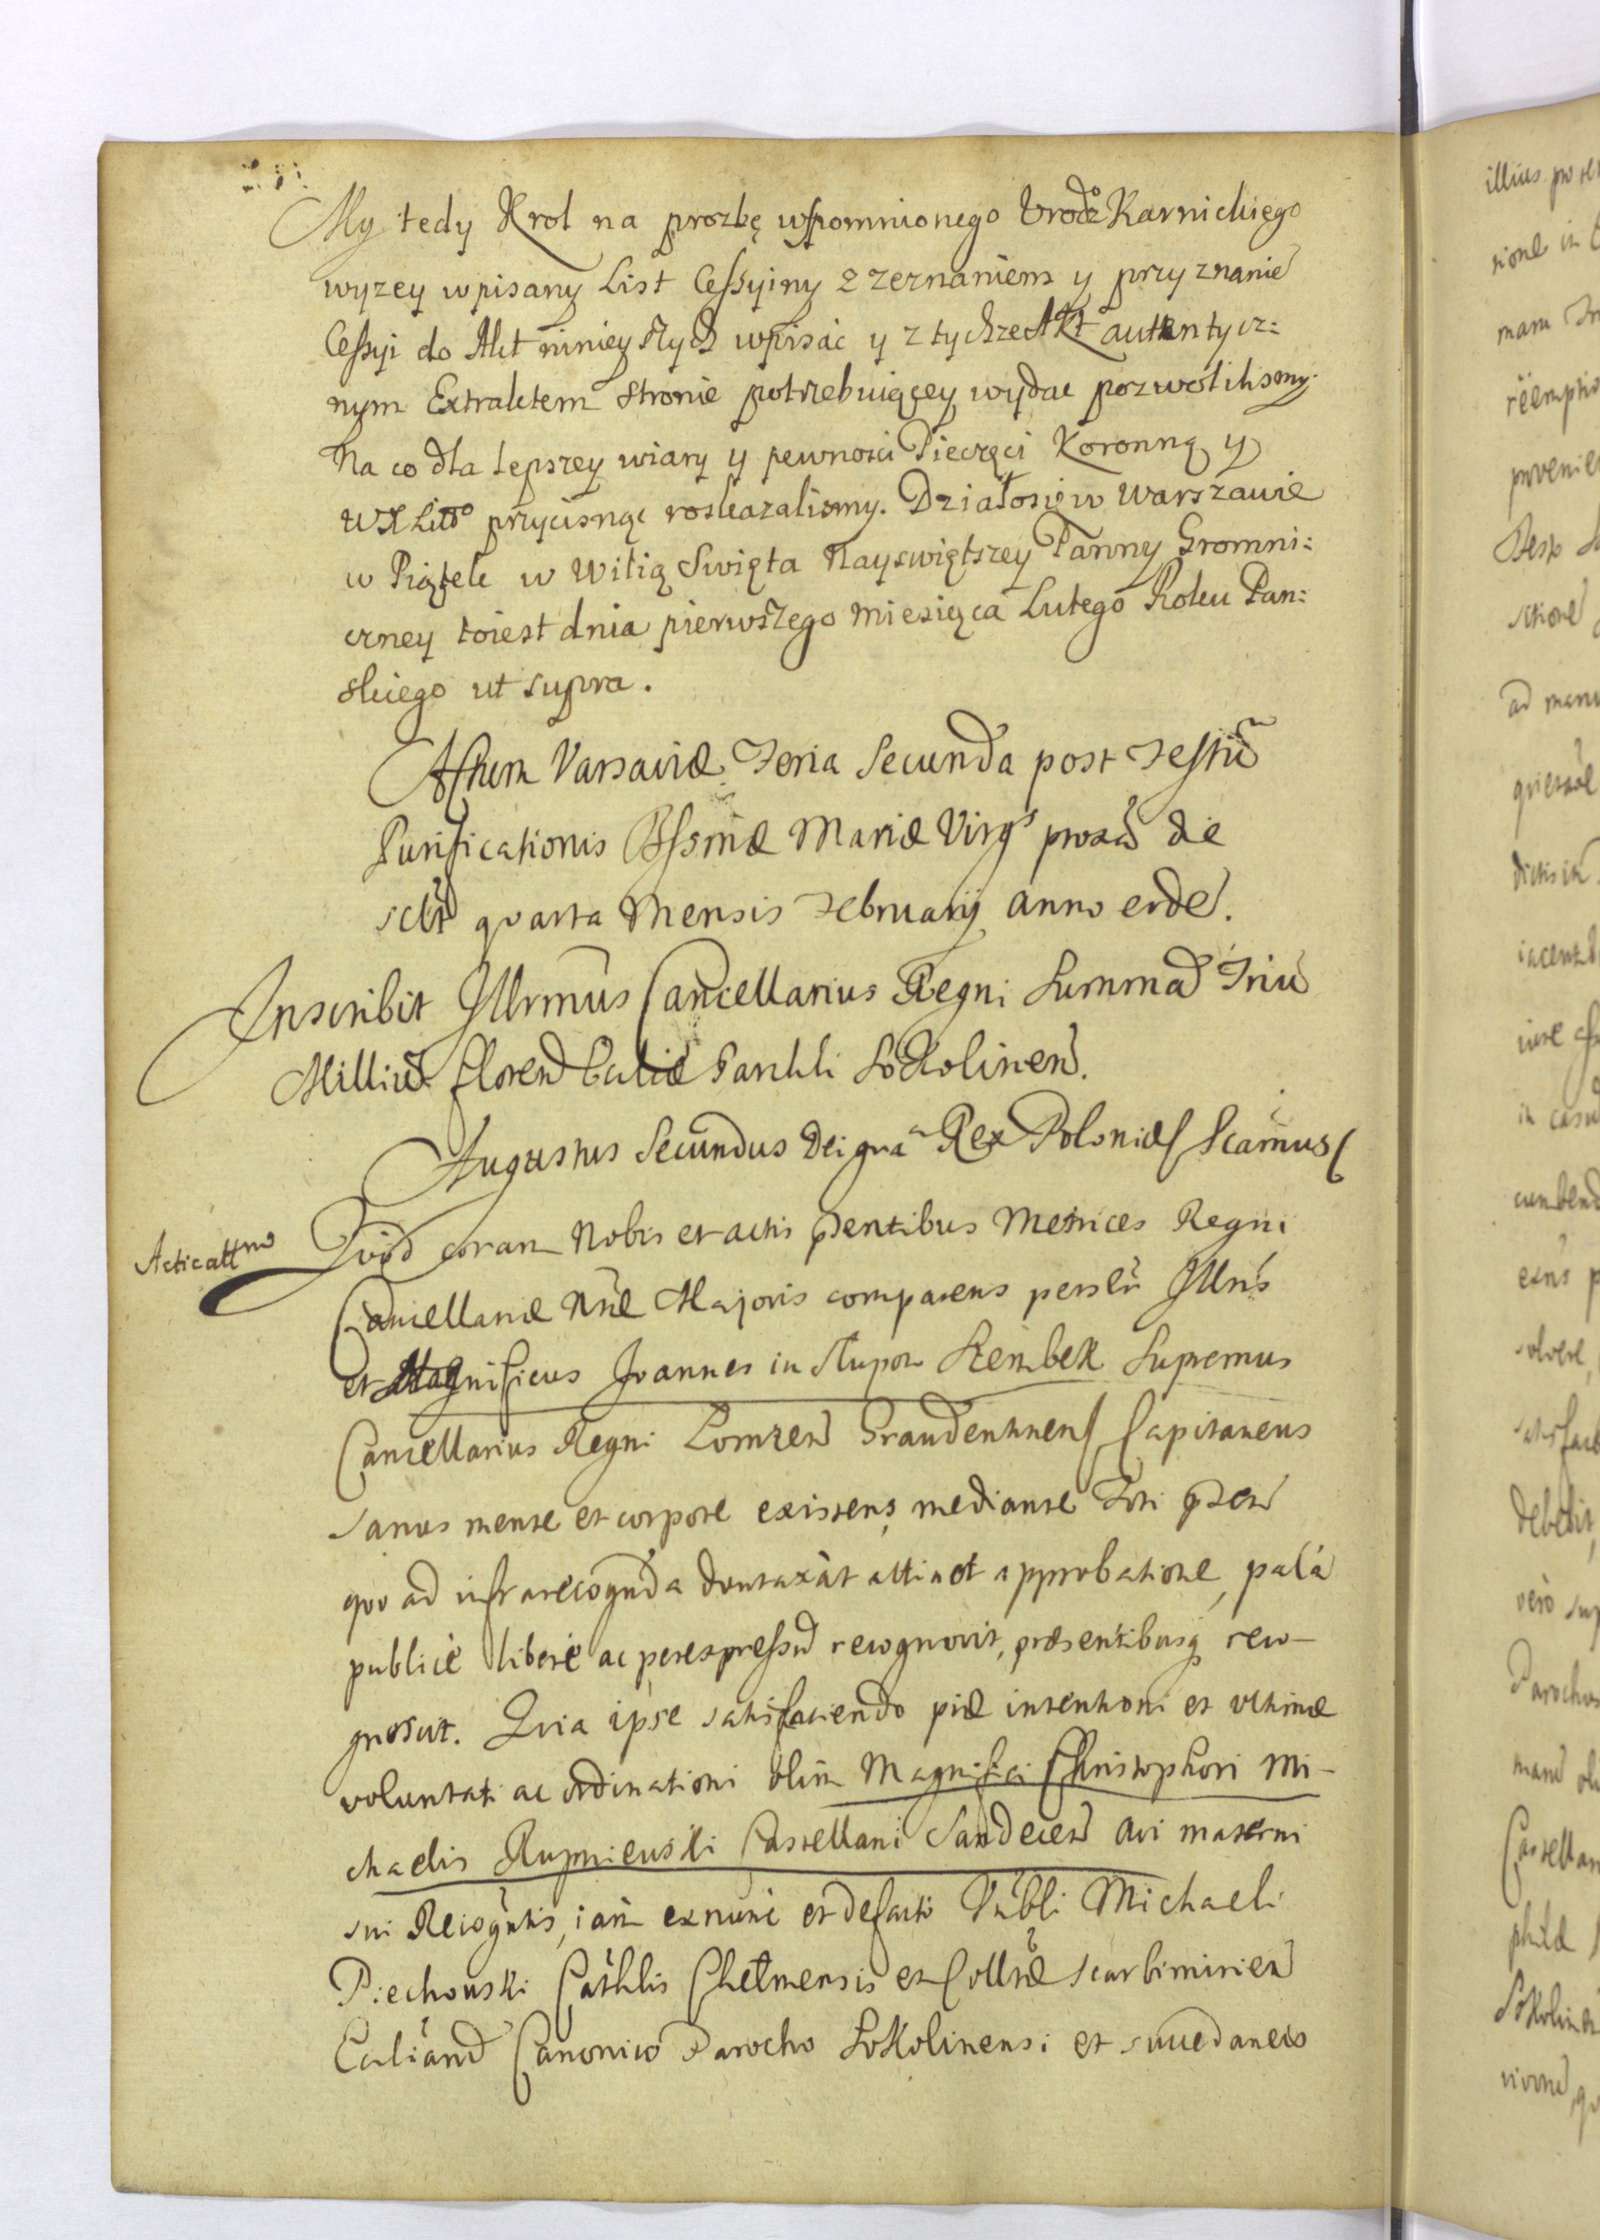 My tedy Krol na prozbę wspomnionego Urodzo Karnickiego
wyzey wpisany List Cessyiny z zeznaniem y przyznanie
Cessyi do Akt ninieyszych wpisać y z tychze Akt autentycz:
nym Extraktem stronie potrzebuiącey wydac pozwolilismy.
Na co dla lepszey wiary y pewnosci Pieczęci Koronną y
WXLitto przycisnąc roskazalismy. Działosię w Warszawie
w Piątek w Wilią Swięta Nayswiętszey Panny Gromni:
czney toiest dnia pierwszego Miesiąca Lutego Roku Pan:
skiego ut supra.
Actum Varsaviæ Feria Secunda post Festū
Purificationis Bssmæ Mariæ Virgs proxa die
sclt quarta Mensis Februarij anno eode.
Inscribit Illrmus Cancellarius Regni Summa Triu
Milliu floren Eccliæ Parchli Sokolinen.
Augustus Secundus Dei gra Rex Poloniæ Scamus
Acticattno
Quod coram Nobis et actis pntibus Metrices Regni
Cancellariæ Nræ Majoris comparens persлr Illris
et Magnificus Joannes in Słupow Szembek Supremus
Cancellarius Regni Lomzen Graudentinens Capitaneus
sanus mente et corpore existens, mediante Fori
quo ad infrarecognda duntaxat attinet approbatione, palá
publicè liberè ac per expressum recognovit, præsentibusq reco-
gnoscit. Quia ipse satisfaciendo piæ intentioni et ultimæ
voluntati ac ordinationi olim Magnifici Christophori Mi-
chaelis Rupniewski Castellani Sandecen avi materni
sui Recogntis, iam exnunc et defacto Vnbli Michaeli
Piechowski Cathlis Chelmensis et Collтæ Scarbimirien
Eccliaru Canonico Parocho Sokolinensi et succedaneis